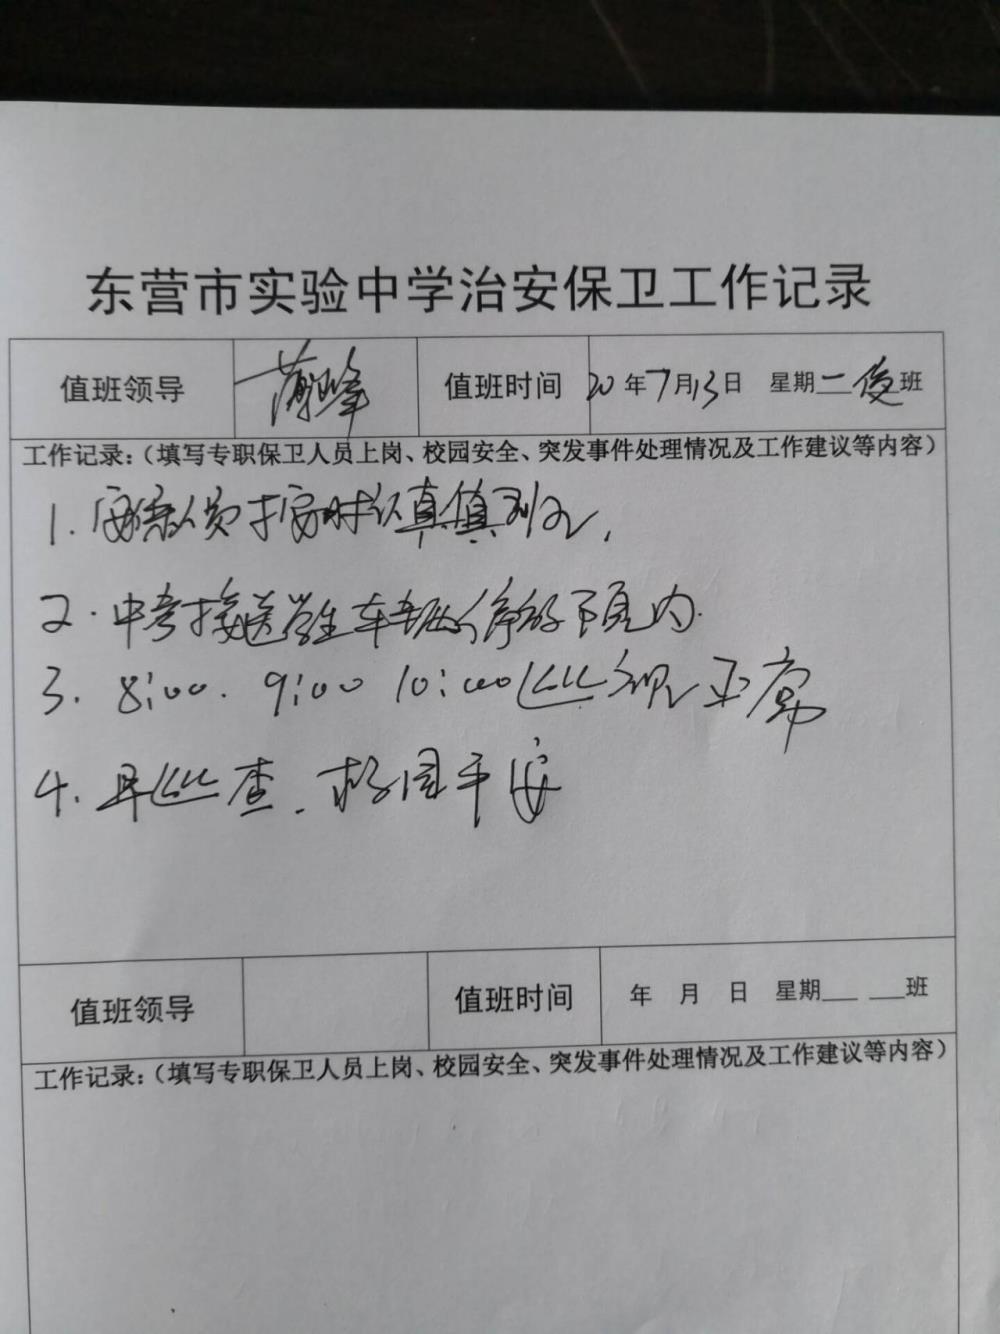 东营市实验中学治安保卫工作记录
值班领导 值班时间 20年7月13日 星期二夜班
工作记录:(填写专职保卫人员上岗、校园安全、突发事件处理情况及工作建议等内容)
1. 安保人员按时认真值班,
2. 中考接送学生车辆停放
3. 8:00. 9:00 10:00巡视正常
4. 早巡查. 校园平安
值班领导 值班时间 年 月 日 星期___ ___班
工作记录:(填写专职保卫人员上岗、校园安全、突发事件处理情况及工作建议等内容)